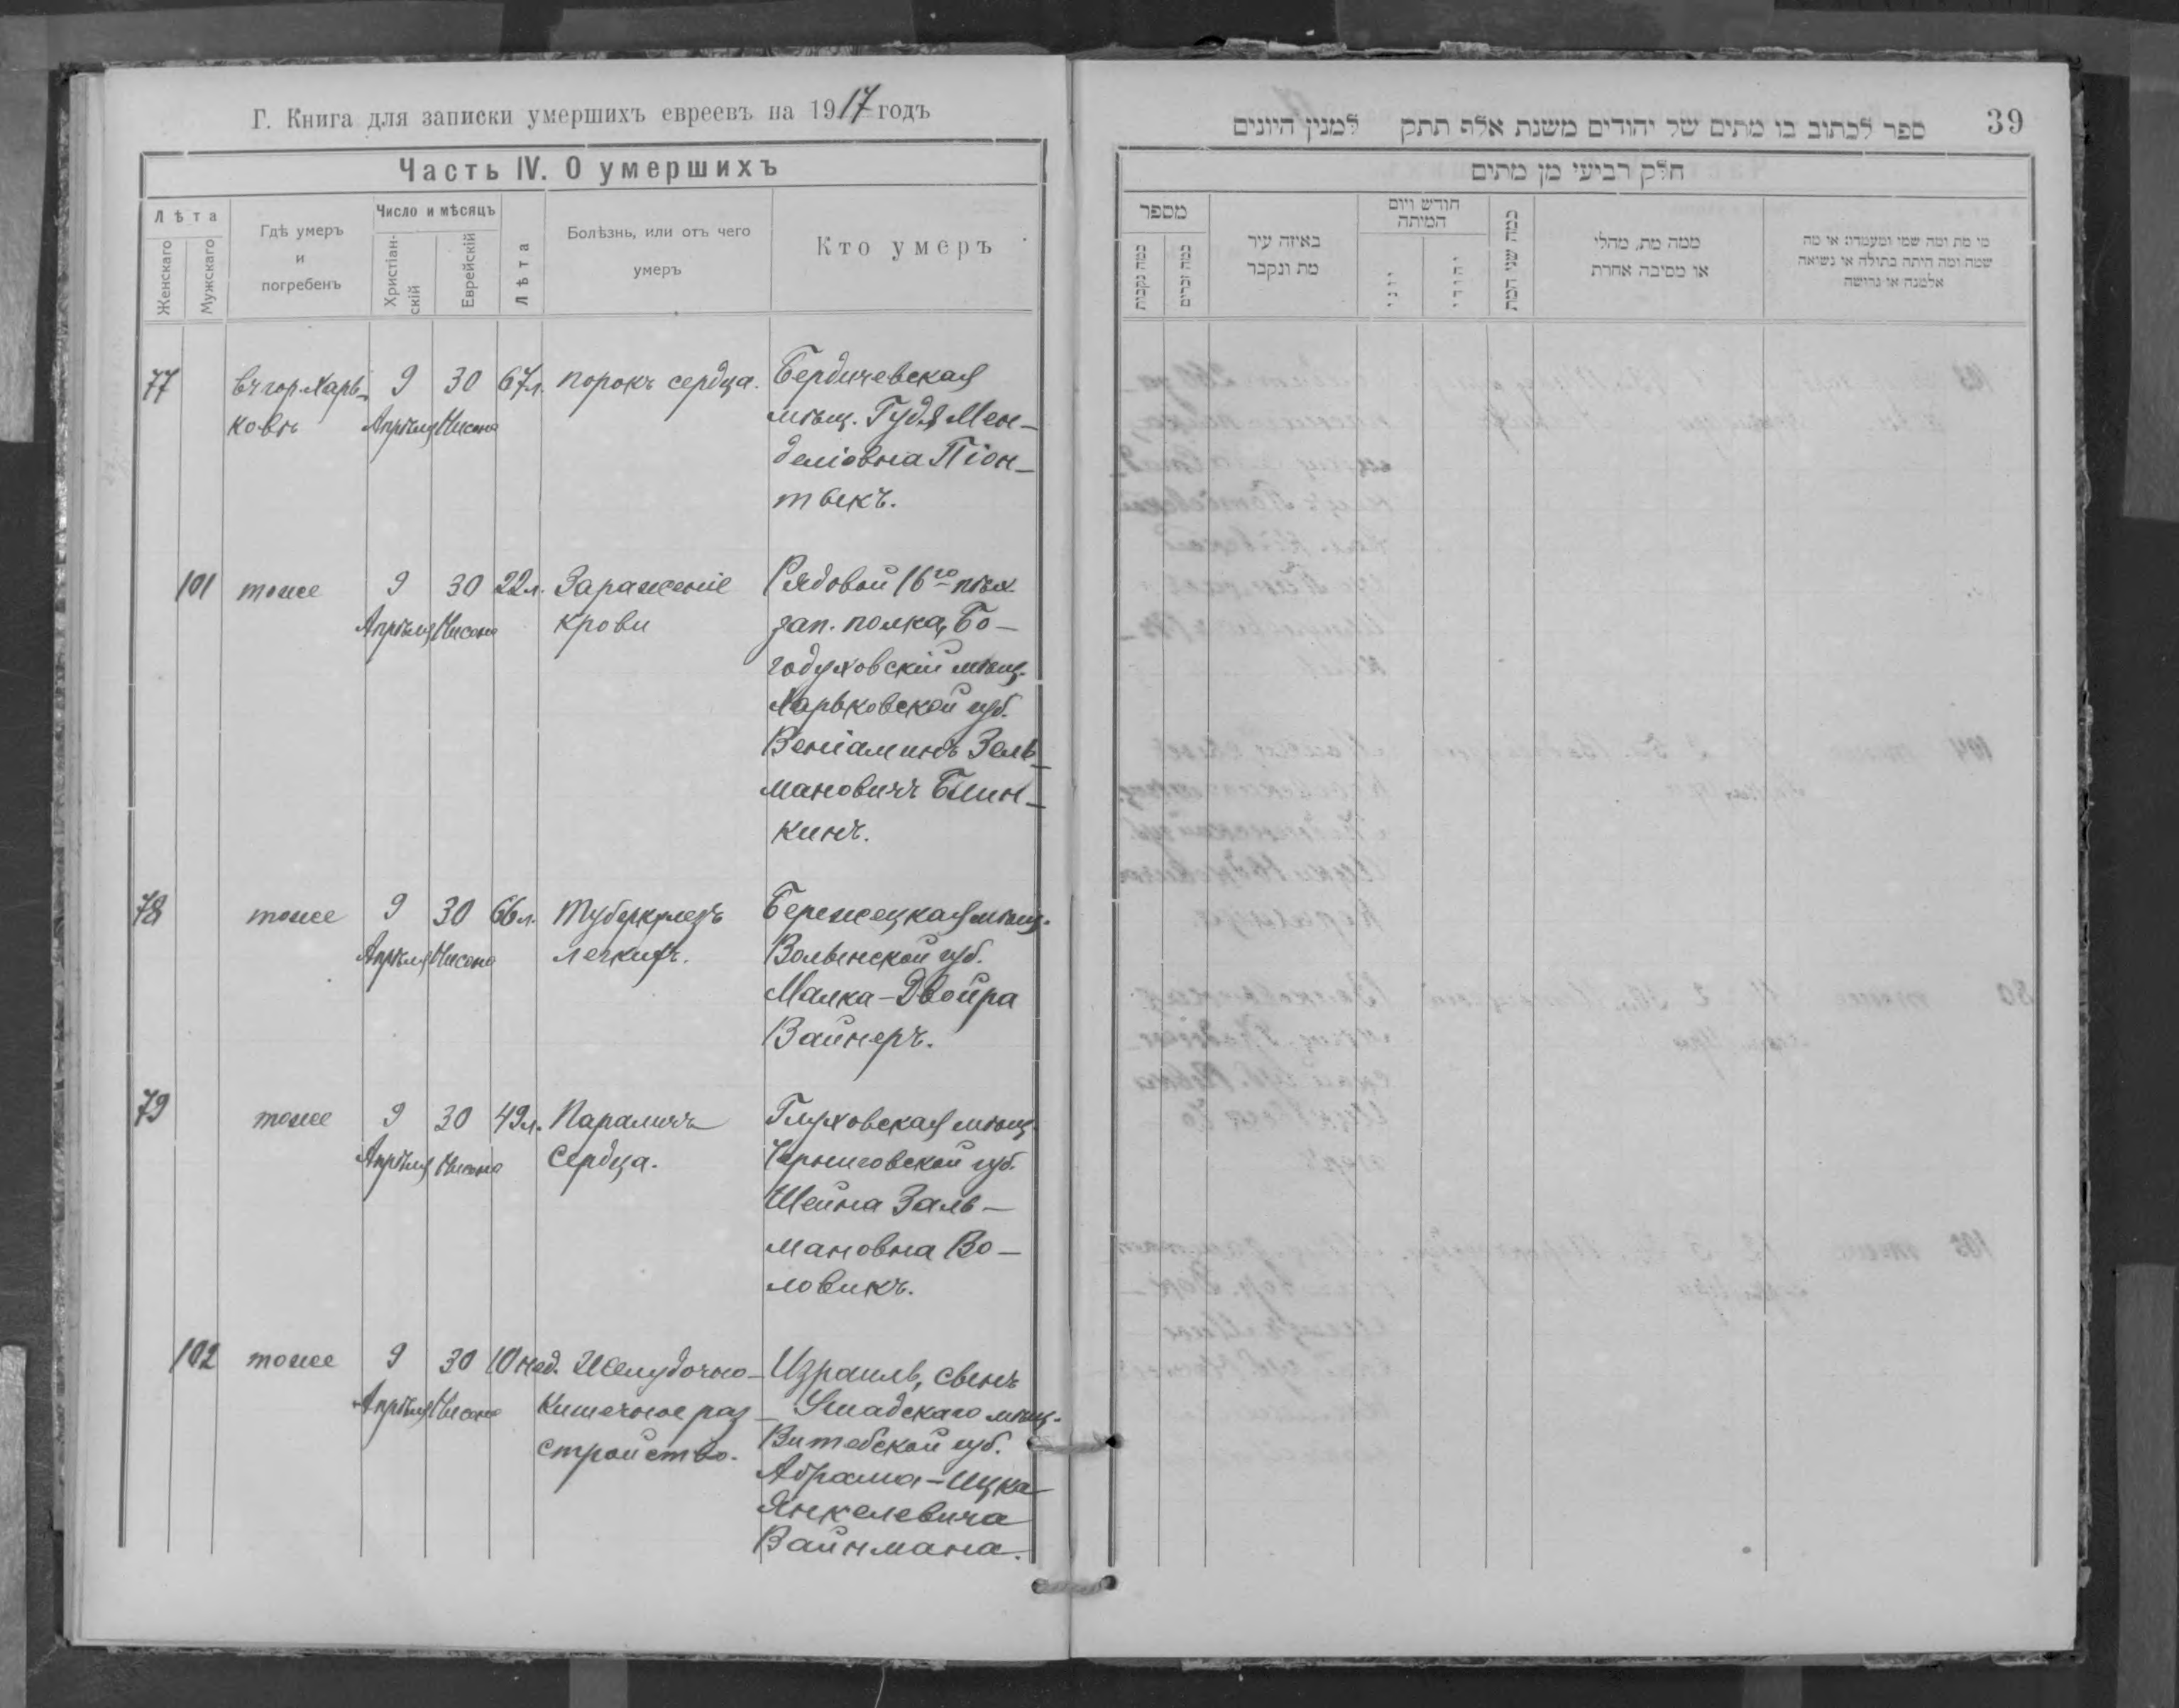 Г. Книга для записки умершихъ евреевъ на 1917 годъ
Часть IV. О умершихъ
Лѣта
Женскаго
Мужскаго
Гдѣ умеръ
и
погребенъ
Число и мѣсяцъ
Христіан-
скій
Еврейскій
Лѣта
Болѣзнь, или отъ чего
умеръ
Кто умеръ
77 въ гор. Харь- 9 30 67 л. порокъ сердца. Бердичевская
ковѣ Апрѣля Нисана мѣщ. Гудя Мен-
деліовна Піон-
твекъ.
101 тоже 9 30 22 л. Зараженіе Рядовой 16го пѣх.
Апрѣля Нисана крови зап. полка, Бо-
годуховскій мѣщ.
Харьковской губ.
Веніаминъ Зель-
мановичъ Блин-
кинъ.
78 тоже 9 30 66 л. Туберкулезъ Бережецкая мѣщ.
Апрѣля Нисана легкихъ. Волынской губ.
Малка-Двойра
Вайнеръ.
79 тоже 9 30 49 л. Параличъ Глуховская мѣщ.
Апрѣля Нисана сердца. Черниговской губ.
Шейна Заль-
мановна Во-
ловикъ.
102 тоже 9 30 10 нед. Желудочно- Израиль, сынъ
Апрѣля Нисана кишечное раз- мѣщ.
стройство. Витебской губ.
Абрама-Ицка
Янкелевича
Вайнмана.
39
ספר לכתוב בו מתים של יהודים משנת אלף תתק למנין היונים
חלק רביעי מן מתים
מספר
כמה נקבות
כמה זכרים
באיזה עיר
מת ונקבר
חודש ויום
המיתה
יוני
יהודי
כמה שני המת
ממה מת, מחלי
או מסיבה אחרת
מי מת ומה שמו ומעמדו או מה
שמה ומה היתה בתולה או נשואה
אלמנה או גרושה